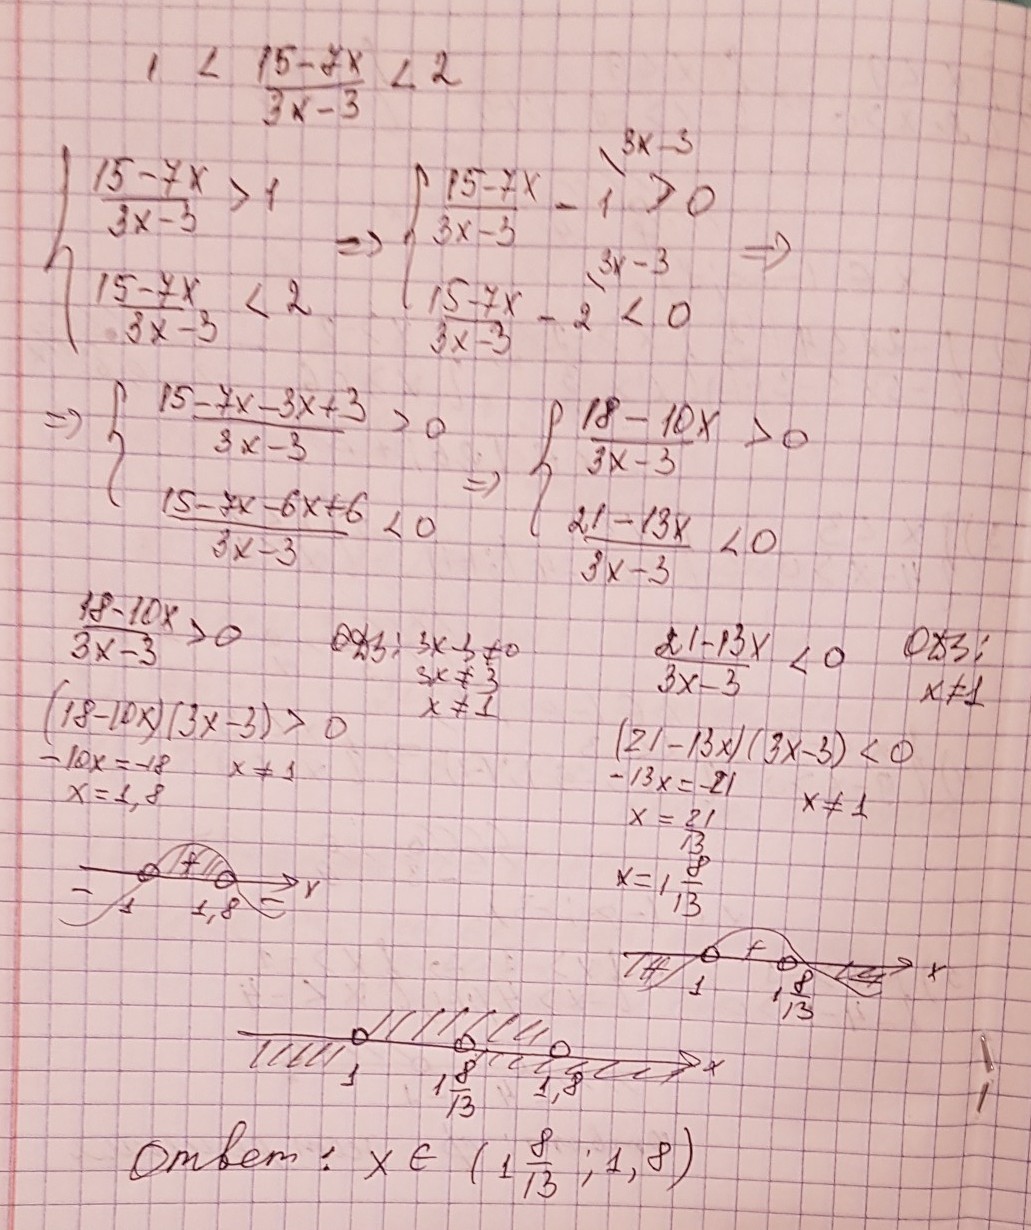 1 < (15-7x)/(3x-3) < 2
{ (15-7x)/(3x-3) > 1 ; (15-7x)/(3x-3) < 2 => { (15-7x)/(3x-3) - 1 \ 3x-3 > 0 ; (15-7x)/(3x-3) - 2 \ 3x-3 < 0 =>
=> { (15-7x-3x+3)/(3x-3) > 0 ; (15-7x-6x+6)/(3x-3) < 0 => { (18-10x)/(3x-3) > 0 ; (21-13x)/(3x-3) < 0
(18-10x)/(3x-3) > 0
ОДЗ: 3x-3≠0
3x≠3
x≠1
(18-10x)(3x-3) > 0
-10x=-18 x≠1
x=1,8
- + - x
1 1,8
(21-13x)/(3x-3) < 0 ОДЗ:
x≠1
(21-13x)(3x-3) < 0
-13x=-21 x≠1
x = 21/13
x = 1 8/13
+ x
1 1 8/13
x
1 1 8/13 1,8
Ответ: x ∈ (1 8/13 ; 1,8)